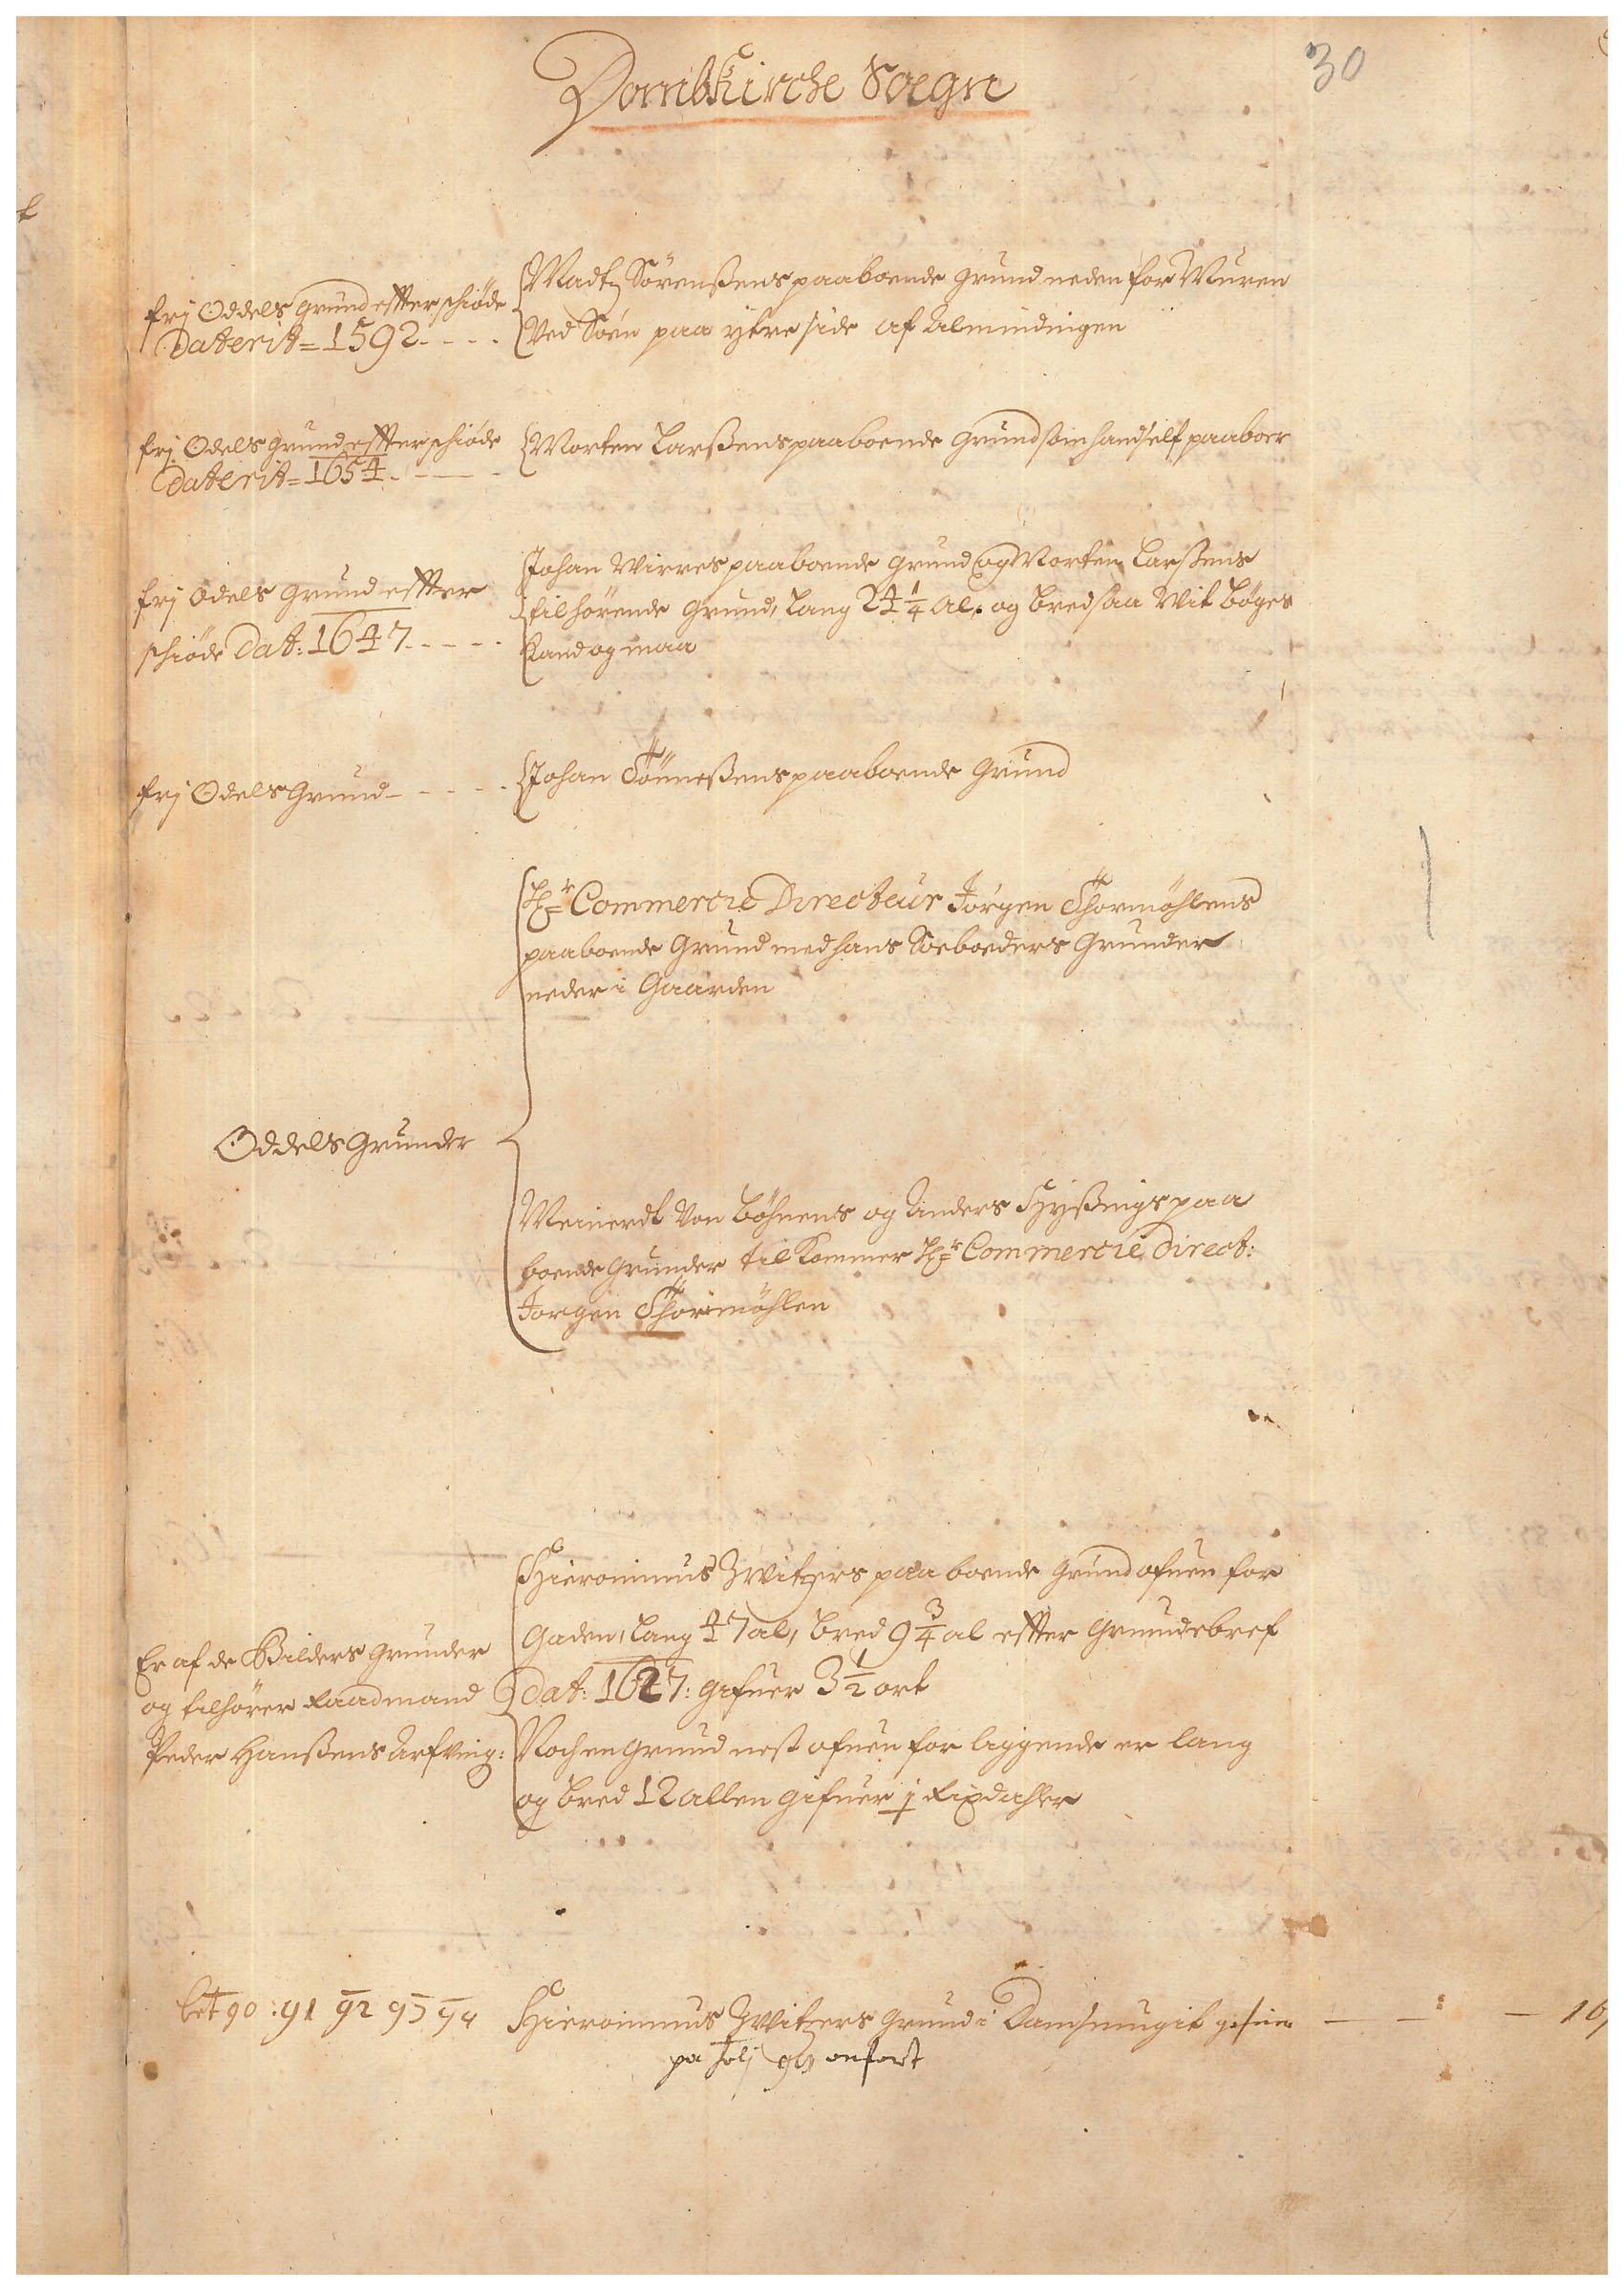 30
DombKirche Soegn
frj Oddels grund effter schiøde
Daterit = 1592 - - - -
Madtz Sørenßens paaboende grund neden for Muren
Ved Søen paa ytre side af Almindingen
frj Odels grund effter schiøde
Daterit = 1654 - - -
Morten Larßens paaboende Grund som hand self paaboer
frj Odels Grund effter
schiøde Dat: 1647 - - - -
Johan Wirres paaboende grund og Morten Larßens
tilhørende Grund, lang 24 1/4 Al. og bred saa Vit bøges
Kand og maa
frj Odels Grund - - - - -
Johan Tönneßens paaboende Grund
Hr Commercie Directeur Jørgen Thormöhlens
paaboende Grund med hans Soeboeders Grunder
neder i Gaarden
Oddels Grunder
Meinerdt Von Böhnens og Anders Hyßings paa
boende Grunder tilkommer Hr Commercie Direct:
Jørgen Thormöhlen
Er af de Bilders Grunder
og tilhører Raadmand
Peder Hanßens Arfving:
Hieronimus Zwitzers paa boende Grund ofuen for
Gaden, lang 47 al, bred 9 3/4 al effter Grundebref
Dat: 1627: gifuer 3 1/2 ort
Noch en Grund nest ofuen for liggende er lang
og bred 12 allen gifuer 1 Rixdahler
bet 90 : 91 92 93 94
Hieronimus Zwitzers Grund i Damsmugit gifuer - - - 16
pa Folj 96 anført